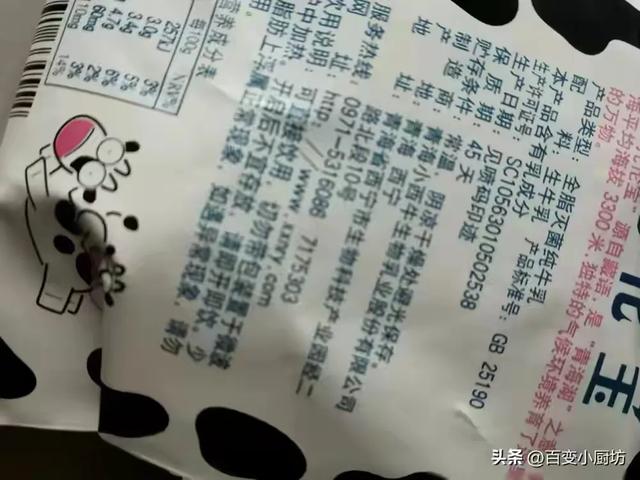 花宝
每平均海拔 3300 米,独特的气候环境养育了
的万物。
产品类型: 全脂灭菌纯牛乳
配 料: 生牛乳 产品标准号: GB 25190
本产品含有乳成分
生产许可证号 SC10563010502538
生产日期: 见喷码印迹
保 质 期: 45 天
贮存条件: 常温、阴凉干燥处避光保存。
制 造 商: 青海小西牛生物乳业股份有限公司
产 地: 青海 西宁
地 址: 青海省西宁市生物科技产业园经二
路北段10号
服务热线: 0971-5316086 7175303
网 址: http://www.xxry.com
饮用说明: 可直接饮用,切勿带包装置于微波
中加热。开启后不宜存放,请即开即饮。少
脂肪上浮属正常现象。如遇异常现象,请勿
用。
营养成分表
每100g NRV%
257kJ 3%
3.0g 5%
3.4g 6%
4.7g 2%
60mg 3%
110mg 14%
头条 @百变小厨坊